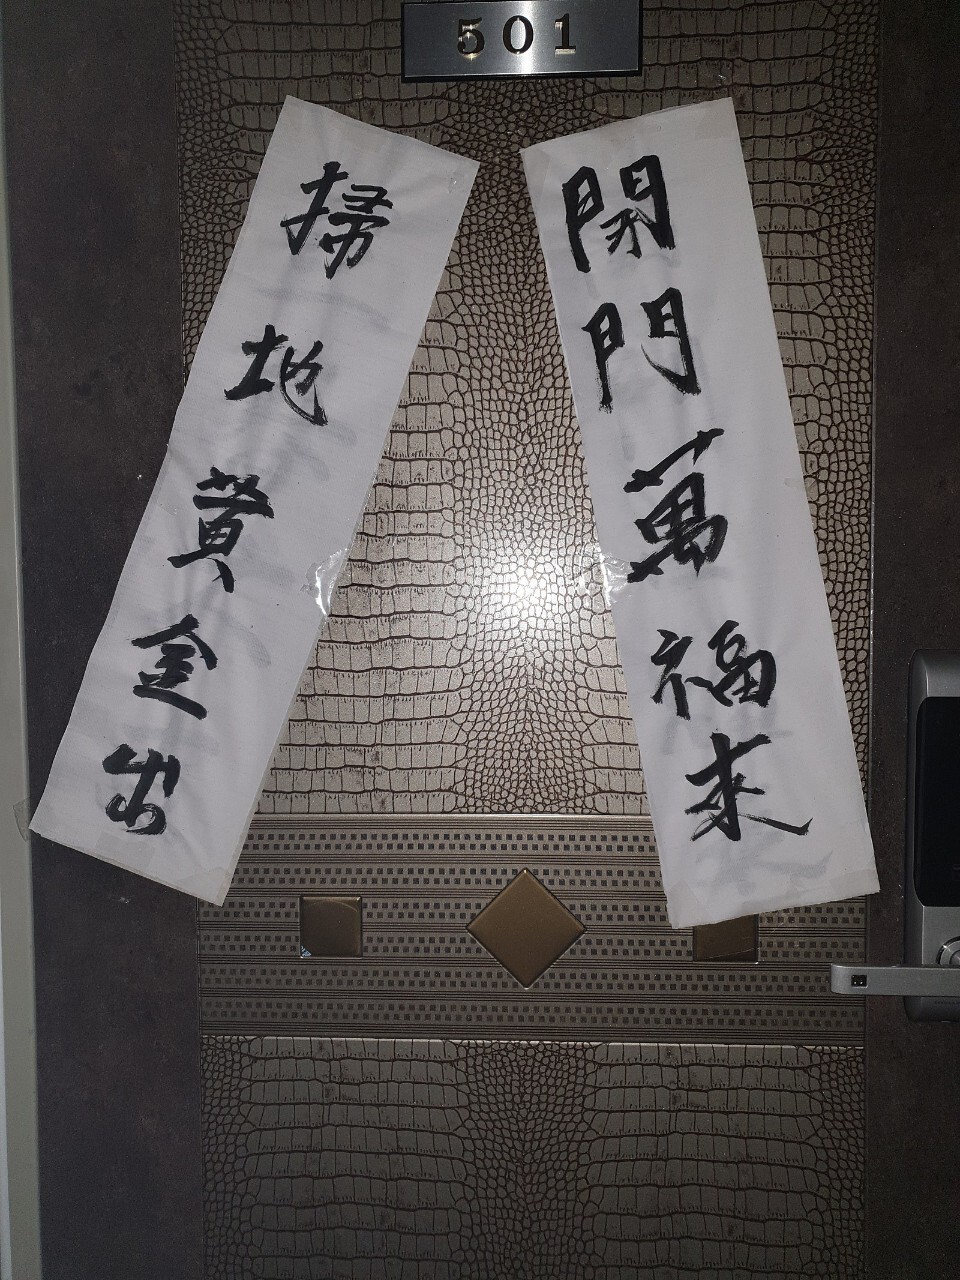 501
開門萬福來
掃地黄金出